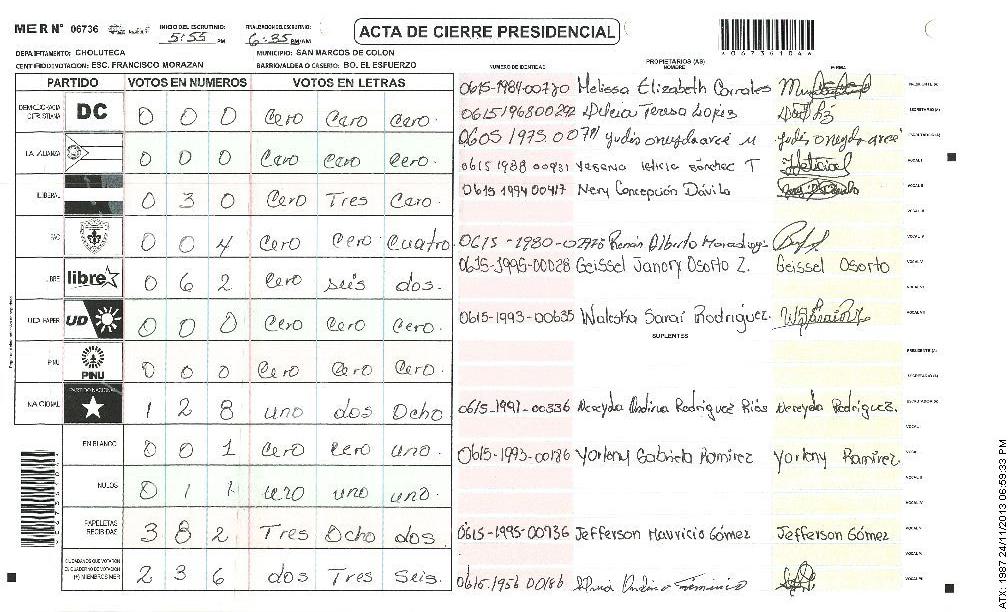 MER N° 06736 INICIO DEL ESCRUTINIO: 5:55 PM FINALIZACION DEL ESCRUTINIO: 6:35 PM/AM
ACTA DE CIERRE PRESIDENCIAL
DEPARTAMENTO: CHOLUTECA MUNICIPIO: SAN MARCOS DE COLON
CENTRO DE VOTACION: ESC. FRANCISCO MORAZAN BARRIO/ALDEA O CASERIO: BO. EL ESFUERZO
PROPIETARIOS (AS)
NUMERO DE IDENTIDAD NOMBRE FIRMA
PARTIDO VOTOS EN NUMEROS VOTOS EN LETRAS
DEMOCRACIA CRISTIANA DC 0 0 0 Cero Cero Cero.
LA ALIANZA 0 0 0 Cero Cero Cero.
LIBERAL 0 3 0 Cero Tres Cero.
PAC 0 0 4 Cero Cero Cuatro
LIBRE libre 0 6 2 Cero seis dos.
UD UD 0 0 0 Cero Cero Cero.
PINU PINU 0 0 0 Cero Cero Cero.
NACIONAL PARTIDO NACIONAL 1 2 8 uno dos Ocho
EN BLANCO 0 0 1 Cero Cero uno.
NULOS 0 1 1 uno uno.
PAPELETAS RECIBIDAS 3 8 2 Tres Ocho dos.
CIUDADANOS QUE VOTARON EN CUADERNO DE VOTACION (+) MIEMBROS MER 2 3 6 dos Tres Seis.
0615-1984-00720 Melissa Elizabeth Corrales PRESIDENTE (A)
Teresa Lopez SECRETARIO (A)
0605 1975 yudis
0615 1988 00931 Yesenia leticia sánchez T VOCAL I
0615 1994 00417 Nery Concepción Dávila VOCAL II
VOCAL III
0615-1980- Alberto VOCAL IV
0615-1995-00028 Geissel Janory Osorto Z. Geissel Osorto VOCAL V
VOCAL VI
0615-1993-00635 Waleska Saraí Rodríguez. VOCAL VII
SUPLENTES
PRESIDENTE (A)
SECRETARIO (A)
0615-1991-00336 Nereyda Rodríguez Ríos Nereyda Rodríguez. ESCRUTADOR (A)
VOCAL I
0615-1993-00186 Yorleny Gabriela Ramirez Yorleny Ramirez VOCAL II
VOCAL III
VOCAL IV
0615-1995-00936 Jefferson Mauricio Gómez Jefferson Gómez VOCAL V
VOCAL VI
0615-1956 00186 VOCAL VII
ATX: 1987 24/11/2013 06:59:33 PM